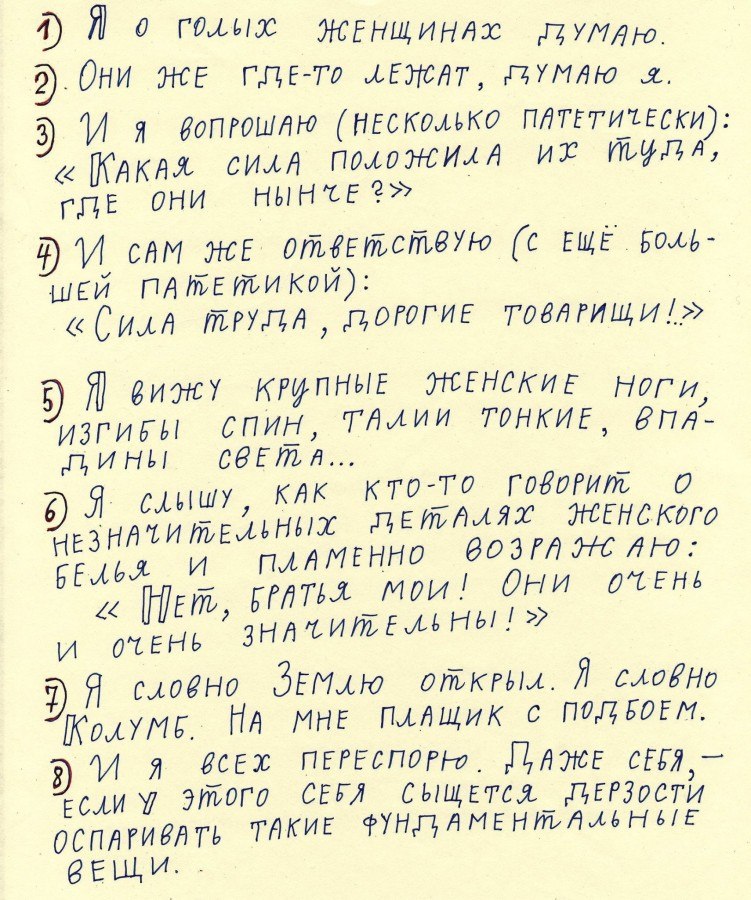 1) Я О ГОЛЫХ ЖЕНЩИНАХ ДУМАЮ.
2). ОНИ ЖЕ ГДЕ-ТО ЛЕЖАТ, ДУМАЮ Я.
3) И Я ВОПРОШАЮ (НЕСКОЛЬКО ПАТЕТИЧЕСКИ):
«КАКАЯ СИЛА ПОЛОЖИЛА ИХ ТУДА,
ГДЕ ОНИ НЫНЧЕ?»
4) И САМ ЖЕ ОТВЕТСТВУЮ (С ЕЩЁ БОЛЬ-
ШЕЙ ПАТЕТИКОЙ):
«СИЛА ТРУДА, ДОРОГИЕ ТОВАРИЩИ!..»
5) Я ВИЖУ КРУПНЫЕ ЖЕНСКИЕ НОГИ,
ИЗГИБЫ СПИН, ТАЛИИ ТОНКИЕ, ВПА-
ДИНЫ СВЕТА...
6) Я СЛЫШУ, КАК КТО-ТО ГОВОРИТ О
НЕЗНАЧИТЕЛЬНЫХ ДЕТАЛЯХ ЖЕНСКОГО
БЕЛЬЯ И ПЛАМЕННО ВОЗРАЖАЮ:
«НЕТ, БРАТЬЯ МОИ! ОНИ ОЧЕНЬ
И ОЧЕНЬ ЗНАЧИТЕЛЬНЫ!»
7) Я СЛОВНО ЗЕМЛЮ ОТКРЫЛ. Я СЛОВНО
КОЛУМБ. НА МНЕ ПЛАЩИК С ПОДБОЕМ.
8) И Я ВСЕХ ПЕРЕСПОРЮ. ДАЖЕ СЕБЯ,—
ЕСЛИ У ЭТОГО СЕБЯ СЫЩЕТСЯ ДЕРЗОСТИ
ОСПАРИВАТЬ ТАКИЕ ФУНДАМЕНТАЛЬНЫЕ
ВЕЩИ.